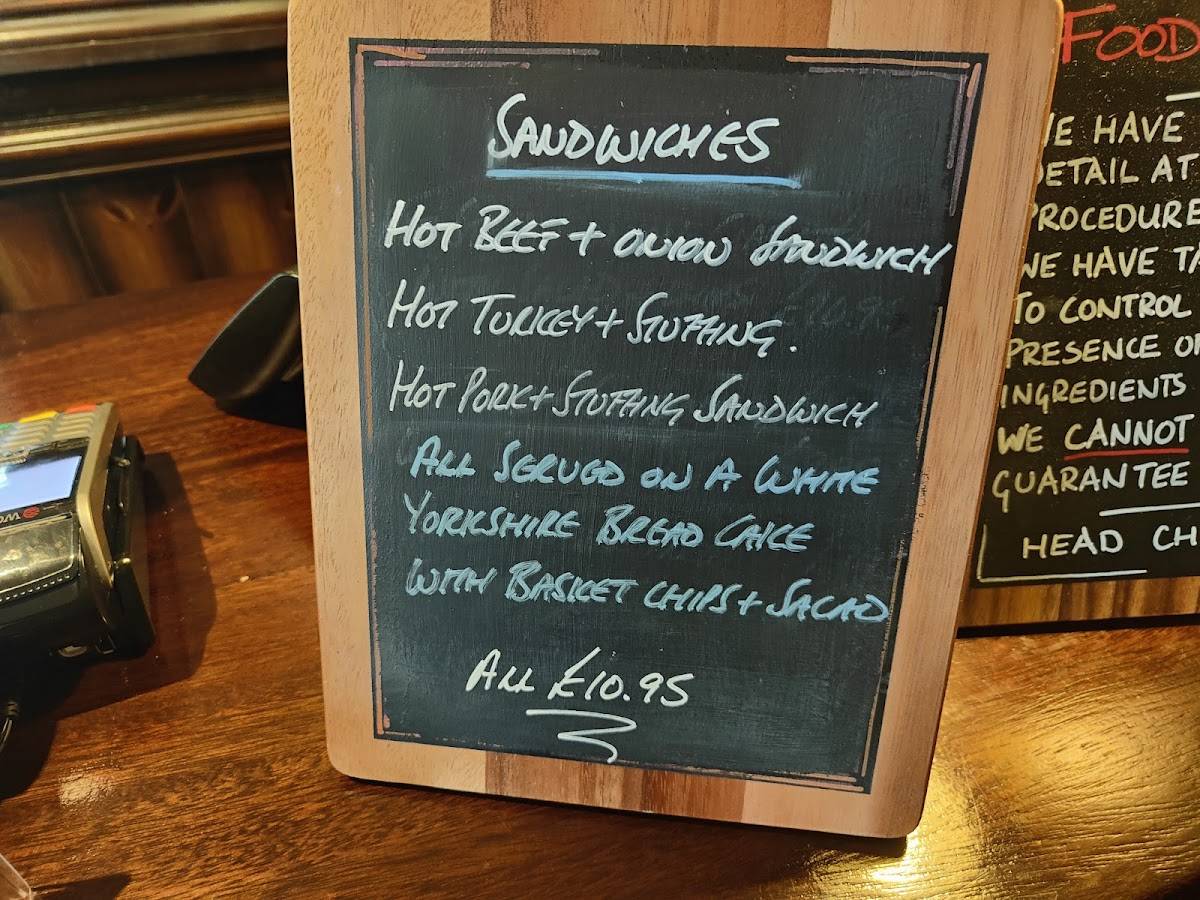 SANDWICHES
HOT BEEF + ONION SANDWICH
HOT TURKEY + STUFFING.
HOT PORK + STUFFING SANDWICH
ALL SERVED ON A WHITE
YORKSHIRE BREAD CAKE
WITH BASKET CHIPS + SALAD
ALL £10.95
FOOD
WE HAVE
DETAIL AT
PROCEDURE
WE HAVE TA
TO CONTROL
PRESENCE OF
INGREDIENTS
WE CANNOT
GUARANTEE
HEAD CH